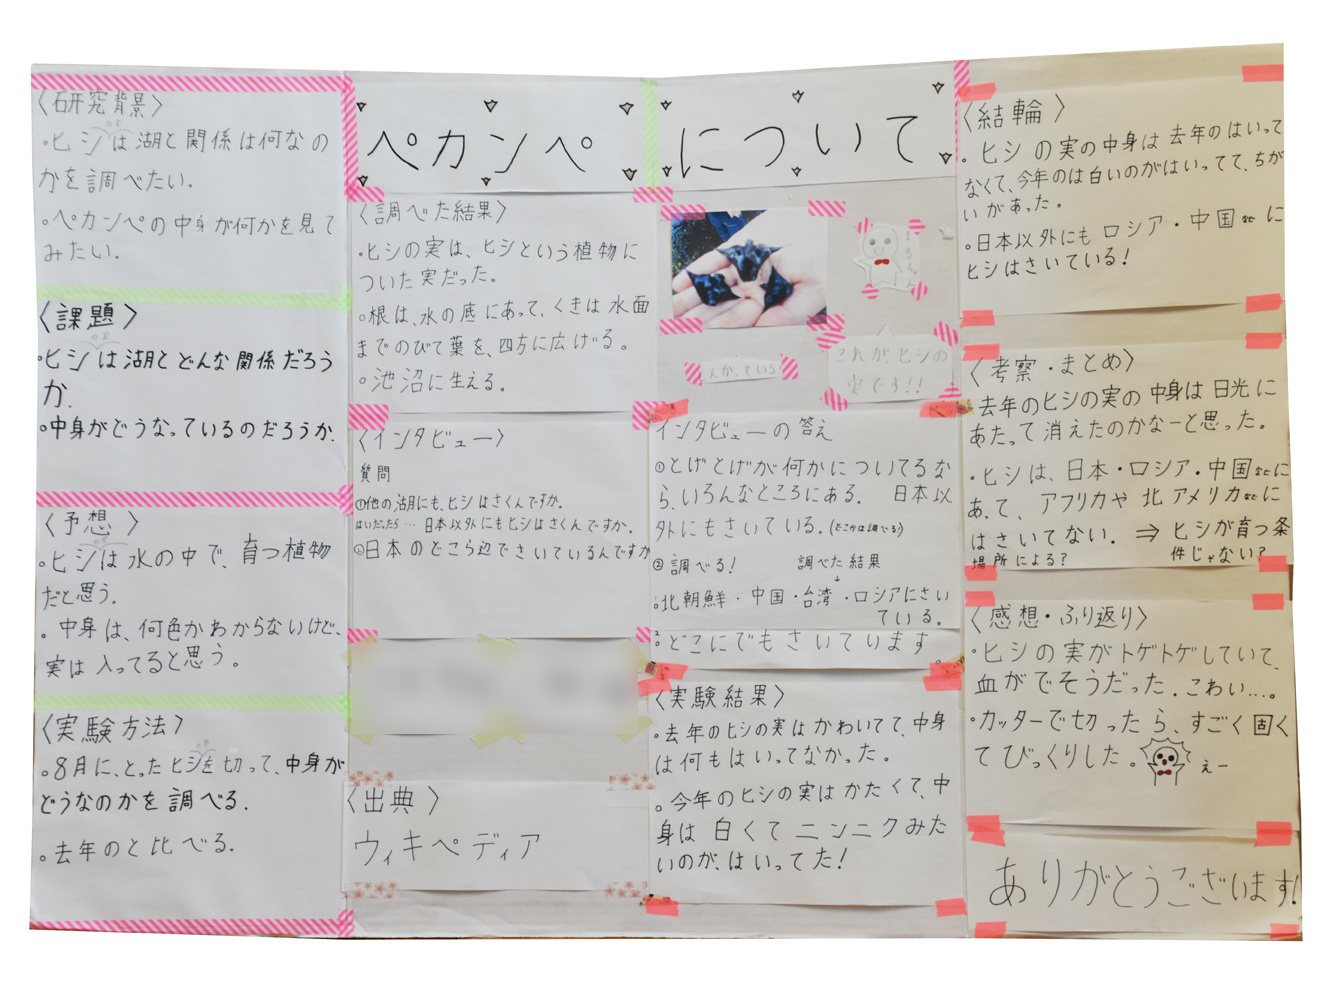 ペカンペ について
〈研究背景〉
・ヒシは湖と関係は何なの
かを調べたい.
・ペカンペの中身が何かを見て
みたい.
〈課題〉
・ヒシは湖とどんな関係だろう
か.
・中身がどうなっているのだろうか.
〈予想〉
・ヒシは水の中で、育つ植物
だと思う.
・中身は、何色かわからないけど、
実は入ってると思う。
〈実験方法〉
・8月に、とったヒシを切って、中身が
どうなのかを調べる.
・去年のと比べる.
〈調べた結果〉
・ヒシの実は、ヒシという植物に
ついた実だった。
・根は、水の底にあって、くきは水面
までのびて葉を、四方に広げる。
・池沼に生える。
〈インタビュー〉
質問
①他の湖にも、ヒシはさくんですか.
はいだったら…日本以外にもヒシはさくんですか.
②日本のどこら辺でさいているんですか
〈出典〉
ウィキペディア
まろちゃん
人か、ている!
これが、ヒシの
実です!!
インタビューの答え
①とげとげが何かについてるな
ら、いろんなところにある. 日本以
外にもさいている.(どこかは調べる)
②調べる! 調べた結果
↓
・北朝鮮・中国・台湾・ロシアにさい
ている.
²どこにでもさいています.
〈実験結果〉
・去年のヒシの実はかわいてて、中身
は何もはいってなかった.
・今年のヒシの実はかたくて、中
身は白くてニンニクみた
いのが、はいってた!
〈結輪〉
・ヒシの実の中身は去年のはいって
なくて、今年のは白いのがはいってて、ちが
いがあった.
・日本以外にもロシア・中国などに
ヒシはさいている!
〈考察・まとめ〉
・去年のヒシの実の中身は日光に
あたって消えたのかなーと思った。
・ヒシは、日本・ロシア・中国などに
あって、アフリカや北アメリカなどに
はさいてない. ⇒ ヒシが育つ条
場所による? 件じゃない?
〈感想・ふり返り〉
・ヒシの実がトゲトゲしていて、
血がでそうだった.こわい…。
・カッターで切ったら、すごく固く
てびっくりした。 えー
ありがとうございます!